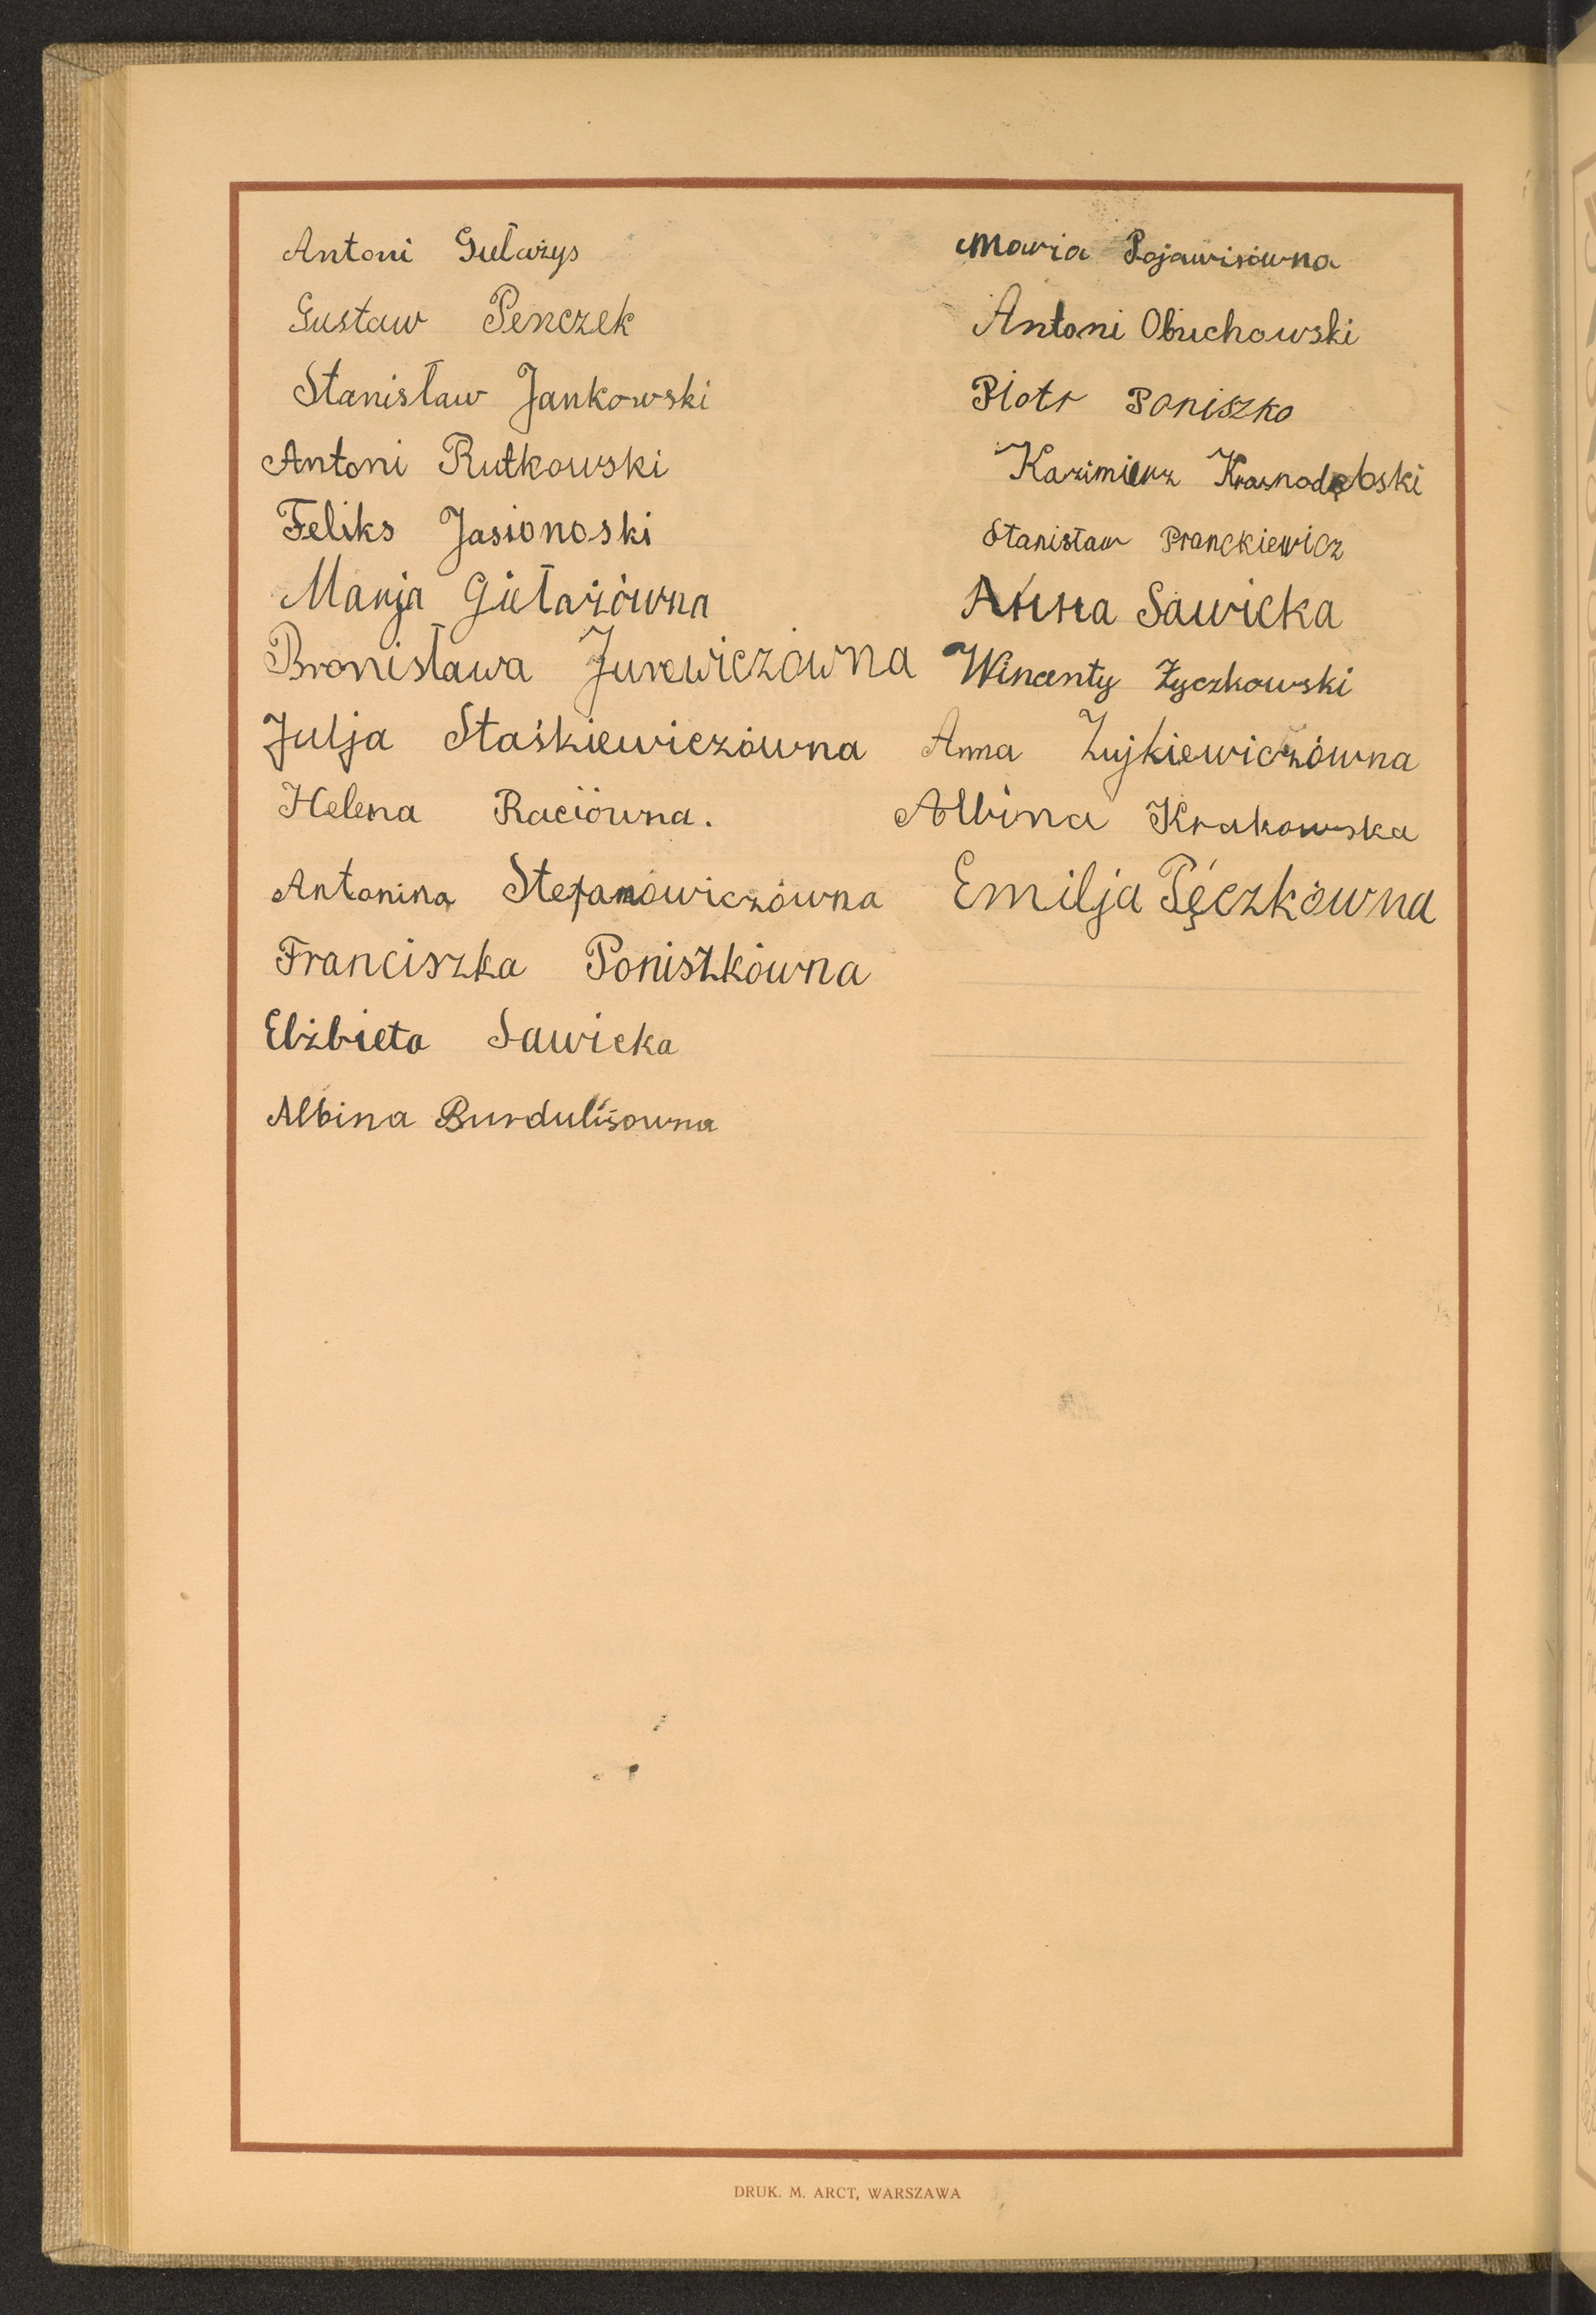 Antoni Gulażys
Gustaw Penczek
Stanisław Jankowski
Antoni Rutkowski
Feliks Jasionoski
Marja Giełażówna
Bronisława Jurewiczówna
Julja Staśkiewiczówna
Helena Raciówna.
Antonina Stefanowiczówna
Franciszka Poniszkówna
Elżbieta Sawicka
Albina Burdulisowna
Maria Pojawisówna
Antoni Obuchowski
Piotr Poniszko
Kazimierz Krasnodębski
Stanisław Pranckiewicz
Anna Sawicka
Wincenty Życzkowski
Anna Zujkiewiczówna
Albina Krakowska
Emilja Pęczkówna
DRUK. M. ARCT, WARSZAWA